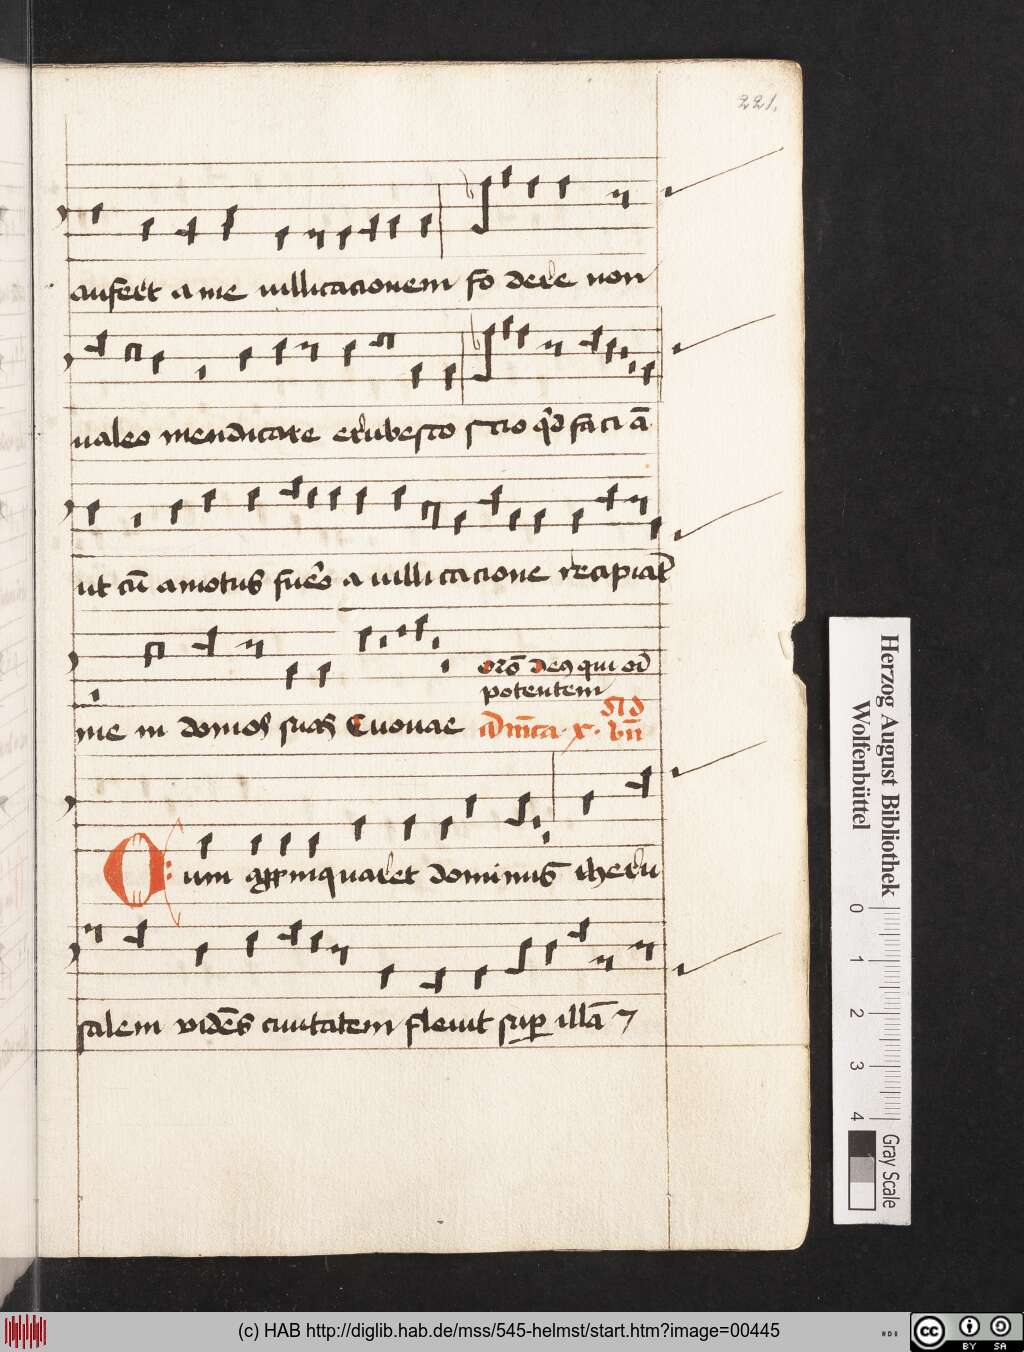 221.
aufert a me uillicacionem fodere non
ualeo mendicare erubesco scio qd faciā
ut cū amotus fuero a uillicacione recipiāt
me in domos suas Euouae
orō deus qui oī
potentem
Dn̄ica · x · bn̄
um appinquaret dominus iheru
salem vidēs ciuitatem fleuit sup illā ⁊
Herzog August Bibliothek
Wolfenbüttel
0 1 2 3 4
Gray Scale
(c) HAB http://diglib.hab.de/mss/545-helmst/start.htm?image=00445
cc BY SA